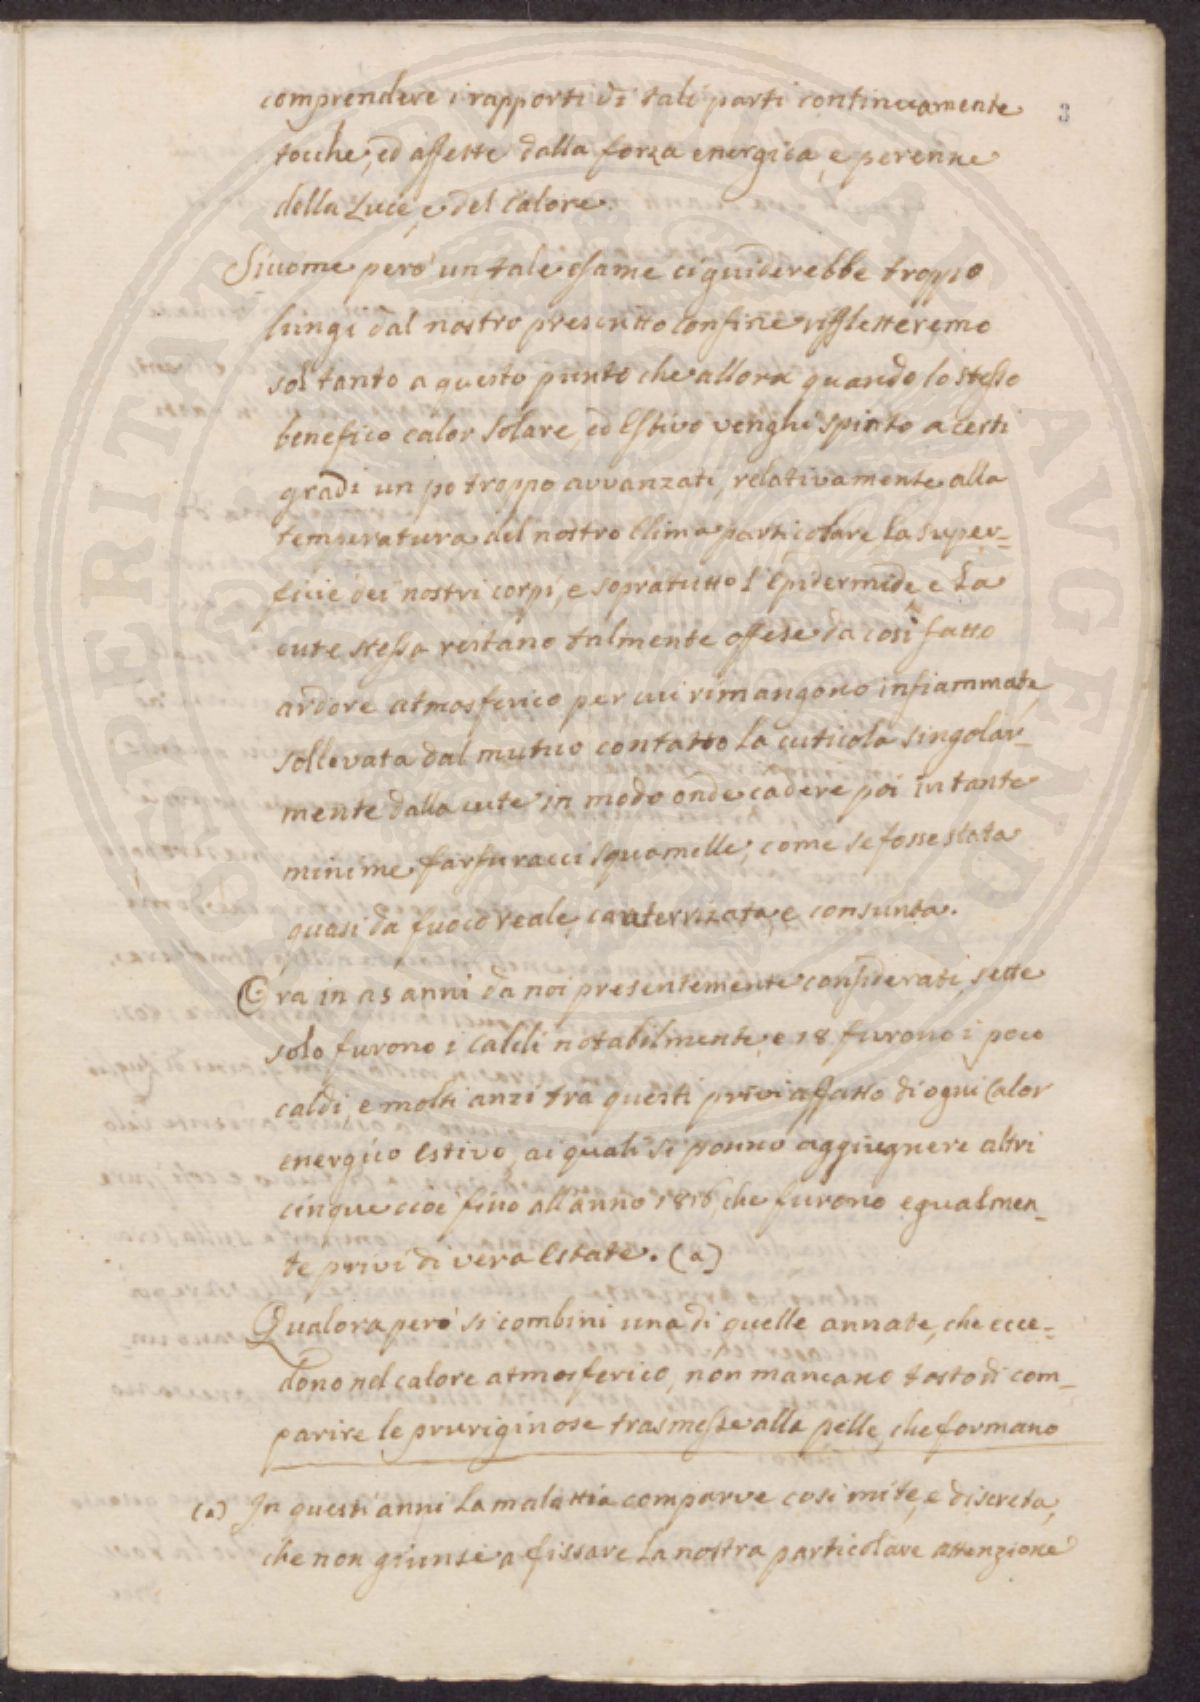 3
comprendere i rapporti di tali parti continuamente
tocche, ed affette dalla forza energica, e perenne
della Luce, e del Calore.
Siccome però un tale esame ci guiderebbe troppo
lungi dal nostro prescritto confine riffletteremo
soltanto a questo punto che allora quando lo stesso
benefico calor solare, ed Estivo venghi spinto a certi
gradi un po troppo avvanzati, relativamente alla
temperatura del nostro Clima particolare, La super=
ficie dei nostri corpi, e sopratutto l'Epidermide, e La
cute stessa restano talmente offese da così fatto
ardore atmosferico per cui rimangono infiammate,
sollevata dal mutuo contatto La cuticola singolar=
mente dalla cute in modo onde cadere poi in tante
minime farfuracci squamelle, come se fosse stata
quasi da fuoco reale, cauterrizata, e consunta.
Ora in 25 anni da noi presentemente considerati, sette
solo furono i Caldi notabilmente, e 18 furono i poco
caldi, e molti anzi tra questi privi affatto di ogni Calor
energico Estivo, ai quali si ponno aggiugnere altri
cinque cioe fino all'anno 1816, che furono egualmen=
te privi di vera Estate. (a)
Qualora però si combini una di quelle annate, che ecce=
dono nel calore atmosferico, non mancano tosto di com=
parire le pruriginose trasmesse alla pelle, che formano
(a) In questi anni La malattia comparve cosi mite, e discreta,
che non giunse a fissare La nostra particolare attenzione
SPERITATI PUBLICAE AUGENDAE